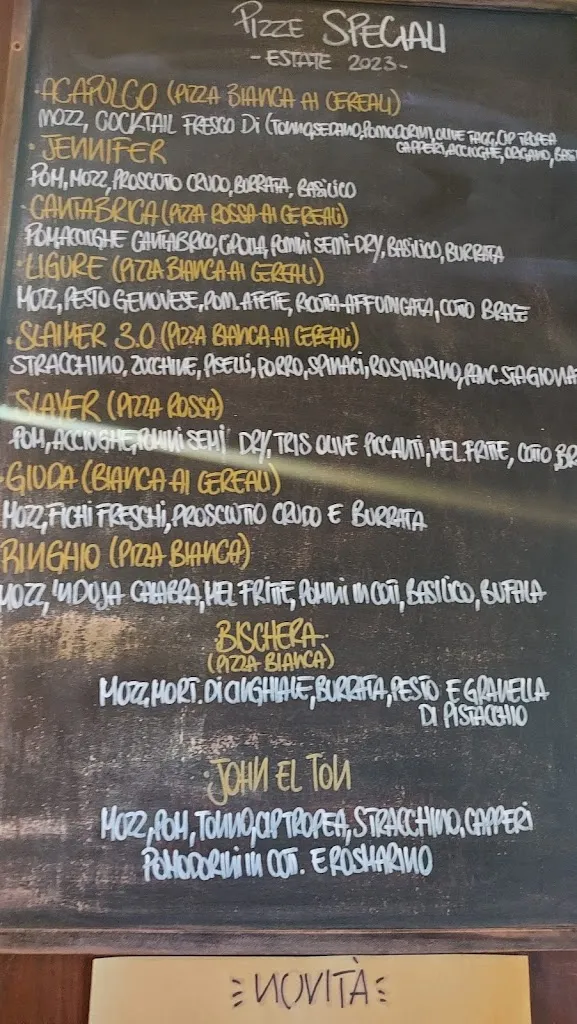 PIZZE SPECIALI
- ESTATE 2023 -
• ACAPOLCO (PIZZA BIANCA AI CEREALI)
MOZZ, COCKTAIL FRESCO DI (TONNO, SEDANO, POMODORINI, OLIVE TAGG, CIP TROPEA
CAPPERI, ACCIUGHE, ORIGANO, BAS
• JENNIFER
POM, MOZZ, PROSCIUTTO CRUDO, BURRATA, BASILICO
• CANTABRICA (PIZZA ROSSA AI CEREALI)
POM, ACCIUGHE CANTABRICO, CIPOLLA, POMINI SEMI-DRY, BASILICO, BURRATA
• LIGURE (PIZZA BIANCA AI CEREALI)
MOZZ, PESTO GENOVESE, POM. A FETTE, RICOTTA AFFUMICATA, COTTO BRACE
• SLAIMER 3.0 (PIZZA BIANCA AI CEREALI)
STRACCHINO, ZUCCHINE, PISELLI, PORRO, SPINACI, ROSMARINO, PANC. STAGIONA
SLAYER (PIZZA ROSSA)
POM, ACCIUGHE, POMINI SEMI DRY, TRIS OLIVE PICCANTI, MEL. FRITTE, COTTO BR
• GIUDA (BIANCA AI CEREALI)
MOZZ, FICHI FRESCHI, PROSCIUTTO CRUDO E BURRATA
RINGHIO (PIZZA BIANCA)
MOZZ, 'NDUJA CALABRA, MEL FRITTE, POMINI IN COTT, BASILICO, BUFALA
BISCHERA
(PIZZA BIANCA)
MOZZ, MORT. DI CINGHIALE, BURRATA, PESTO E GRANELLA
DI PISTACCHIO
• JOHN EL TON
MOZZ, POM, TONNO, CIP TROPEA, STRACCHINO, CAPPERI
POMODORINI IN COTT. E ROSMARINO
NOVITÀ